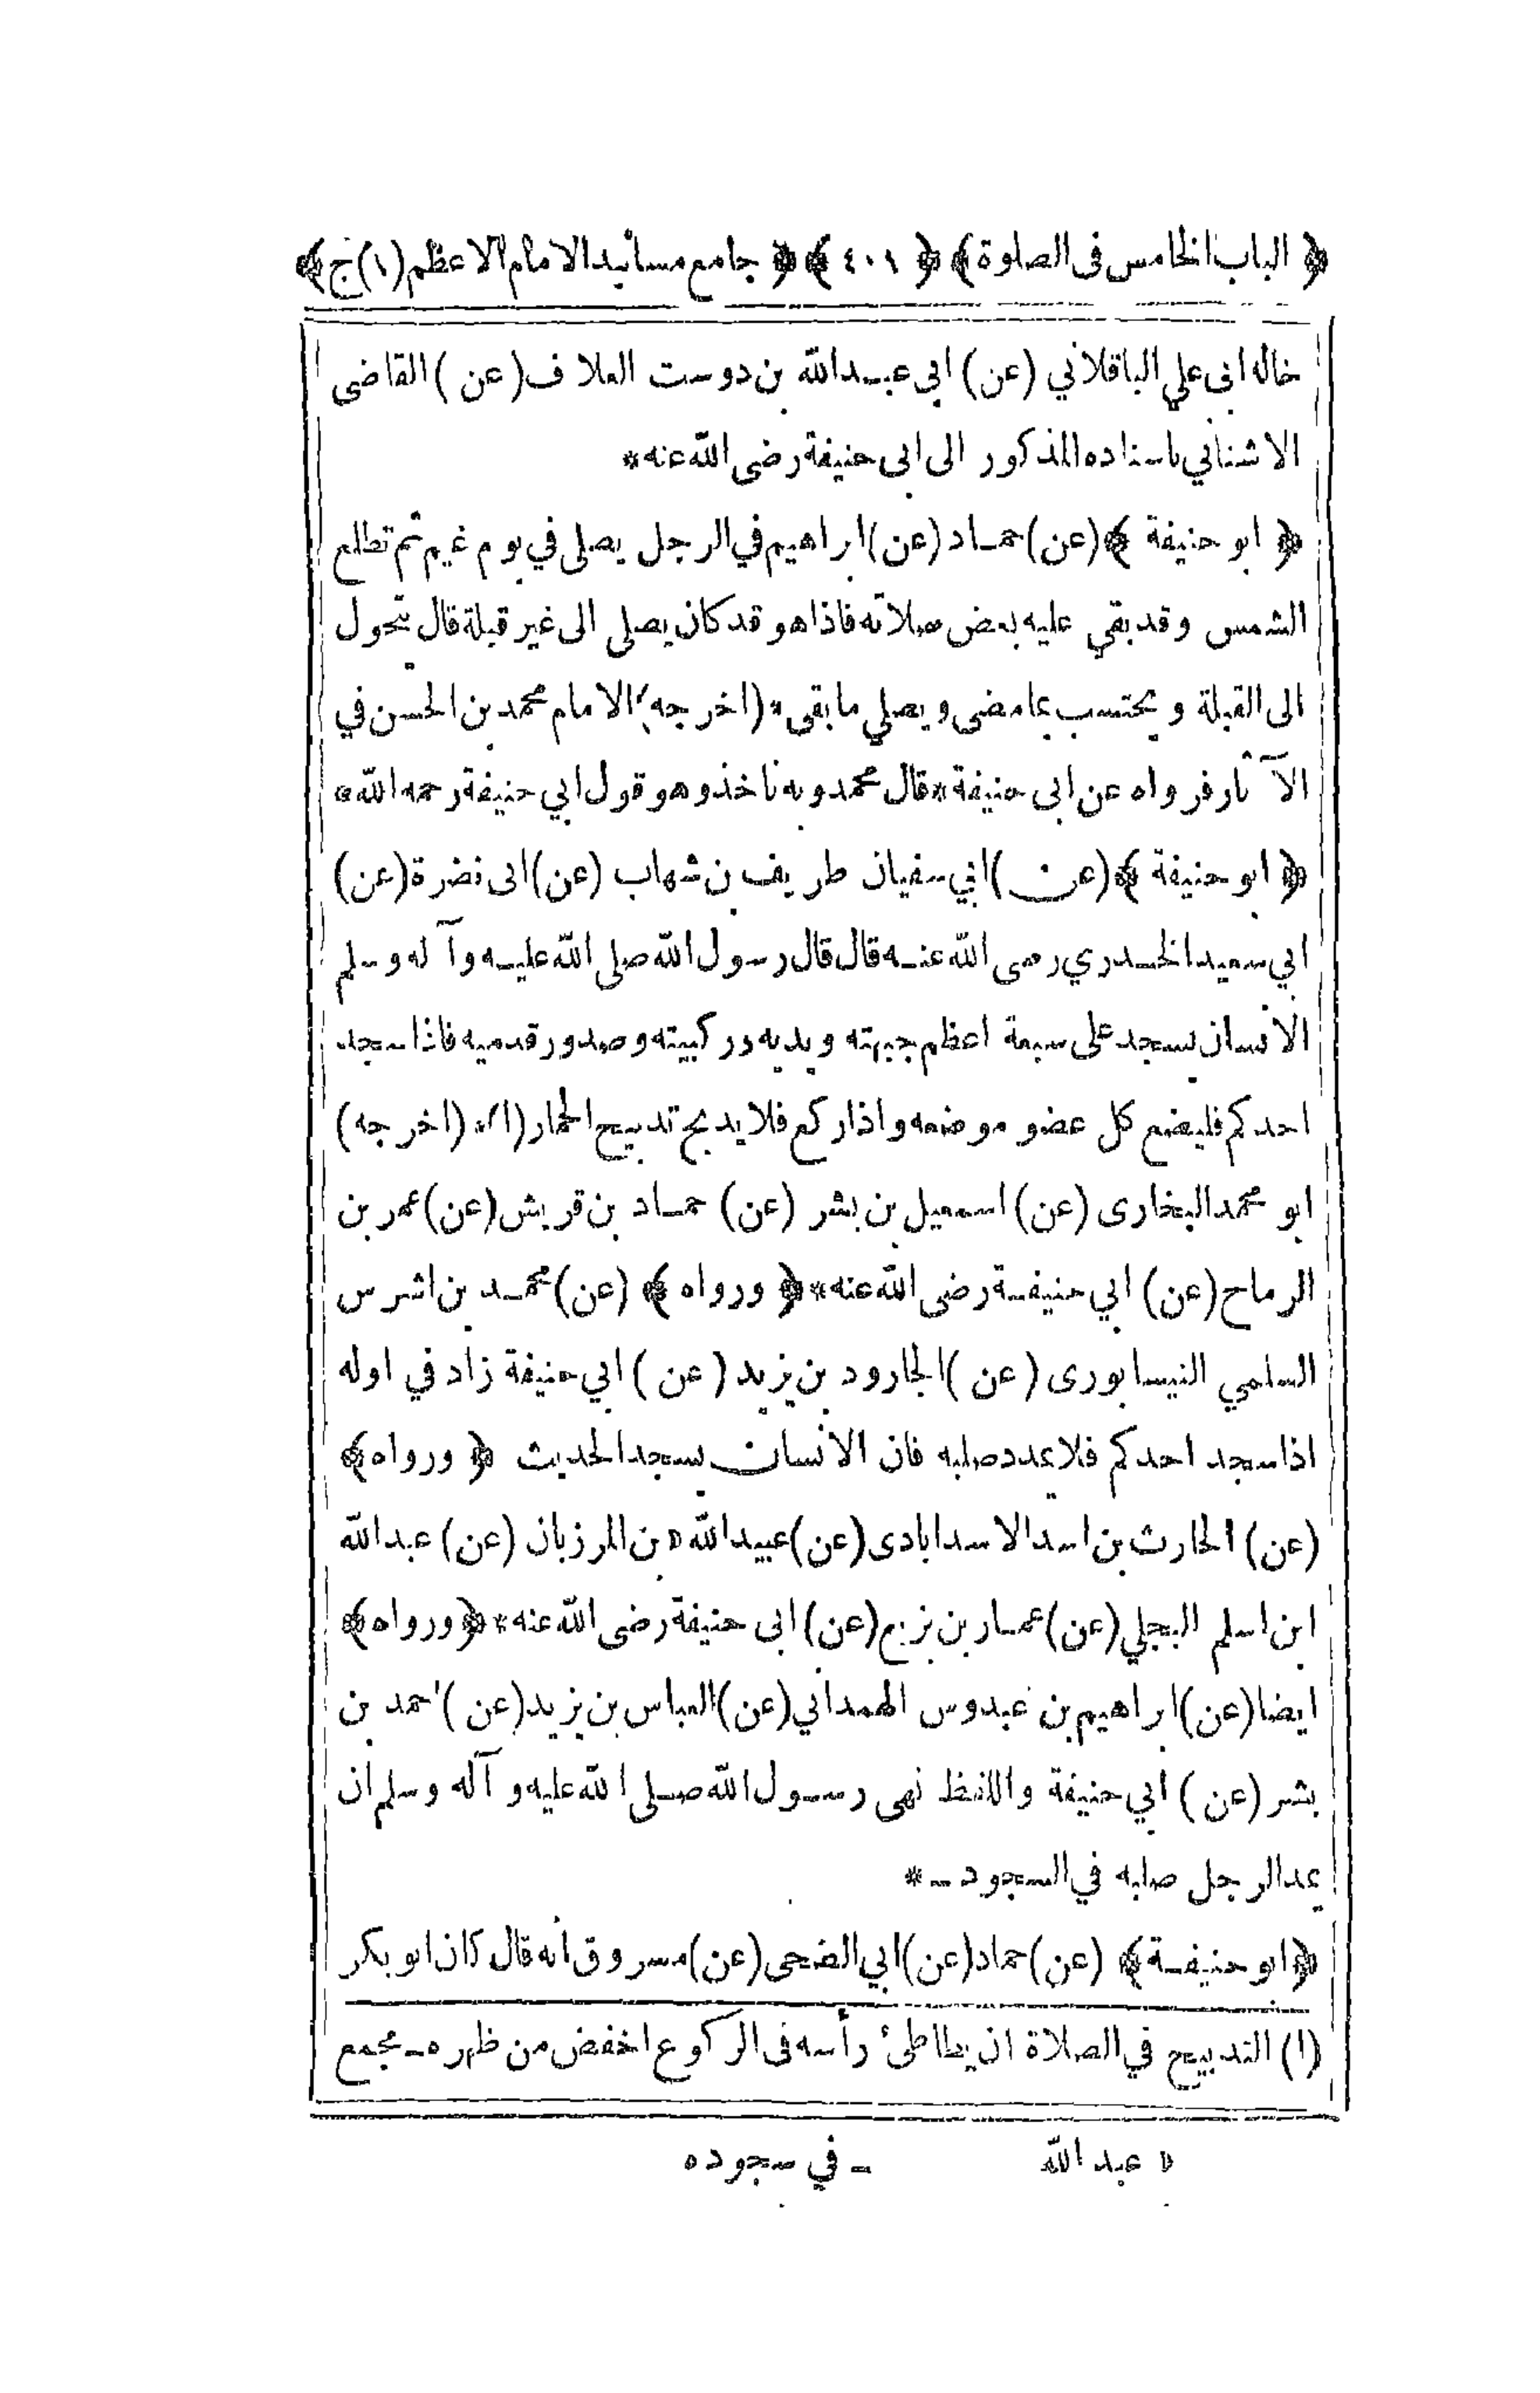 ﴿ الباب الخامس فى الصلوة ﴾ ﴿ ٤٠١ ﴾ ﴿ جامع مسانيد الامام الاعظم (١) ج ﴾
خاله ابى علي الباقلاني (عن) ابى عبد الله بن دوست العلاف (عن) القاضى
الاشناني باسناده المذكور الى ابى حنيفة رضى الله عنه *
﴿ ابو حنيفة ﴾ (عن) حماد (عن) ابراهيم في الرجل يصلى في يوم غيم ثم تطلع
الشمس وقد بقي عليه بعض صلاته فاذا هو قد كان يصلى الى غير قبلة قال يتحول
الى القبلة ويحتسب بما مضى ويصلي ما بقى * (اخرجه) الامام محمد بن الحسن في
الآثار فرواه عن ابى حنيفة * قال محمد وبه ناخذ وهو قول ابي حنيفة رحمه الله *
﴿ ابو حنيفة ﴾ (عن) ابي سفيان طريف بن شهاب (عن) ابى نضرة (عن)
ابي سعيد الخدري رضى الله عنه قال قال رسول الله صلى الله عليه وآله وسلم
الانسان يسجد على سبعة اعظم جبهته ويديه وركبيته وصدور قدميه فاذا سجد
احدكم فليضع كل عضو موضعه واذا ركع فلا يدبح تدبيح الحمار (١) * (اخرجه)
ابو محمد البخارى (عن) اسمعيل بن بشر (عن) حماد بن قريش (عن) عمر بن
الرماح (عن) ابي حنيفة رضى الله عنه * ﴿ ورواه ﴾ (عن) محمد بن اشرس
السلمي النيسابورى (عن) الجارود بن يزيد (عن) ابي حنيفة زاد في اوله
اذا سجد احدكم فلا يمدد صلبه فان الانسان يسجد الحديث ﴿ ورواه ﴾
(عن) الحارث بن اسد الاسدابادى (عن) عبيد الله ¤ بن المرزبان (عن) عبد الله
ابن اسلم البجلي (عن) عمار بن بزيع (عن) ابى حنيفة رضى الله عنه * ﴿ ورواه ﴾
ايضا (عن) ابراهيم بن عبدوس الهمداني (عن) العباس بن يزيد (عن) احمد بن
بشر (عن) ابي حنيفة واللفظ نهى رسول الله صلى الله عليه وآله وسلم ان
يمد الرجل صلبه في السجود ـ *
﴿ ابو حنيفة ﴾ (عن) حماد (عن) ابي الضحى (عن) مسروق انه قال كان ابو بكر
(١) التدبيح في الصلاة ان يطاطئ رأسه فى الركوع اخفض من ظهره ـ مجمع
¤ عبد الله ـ في سجوده